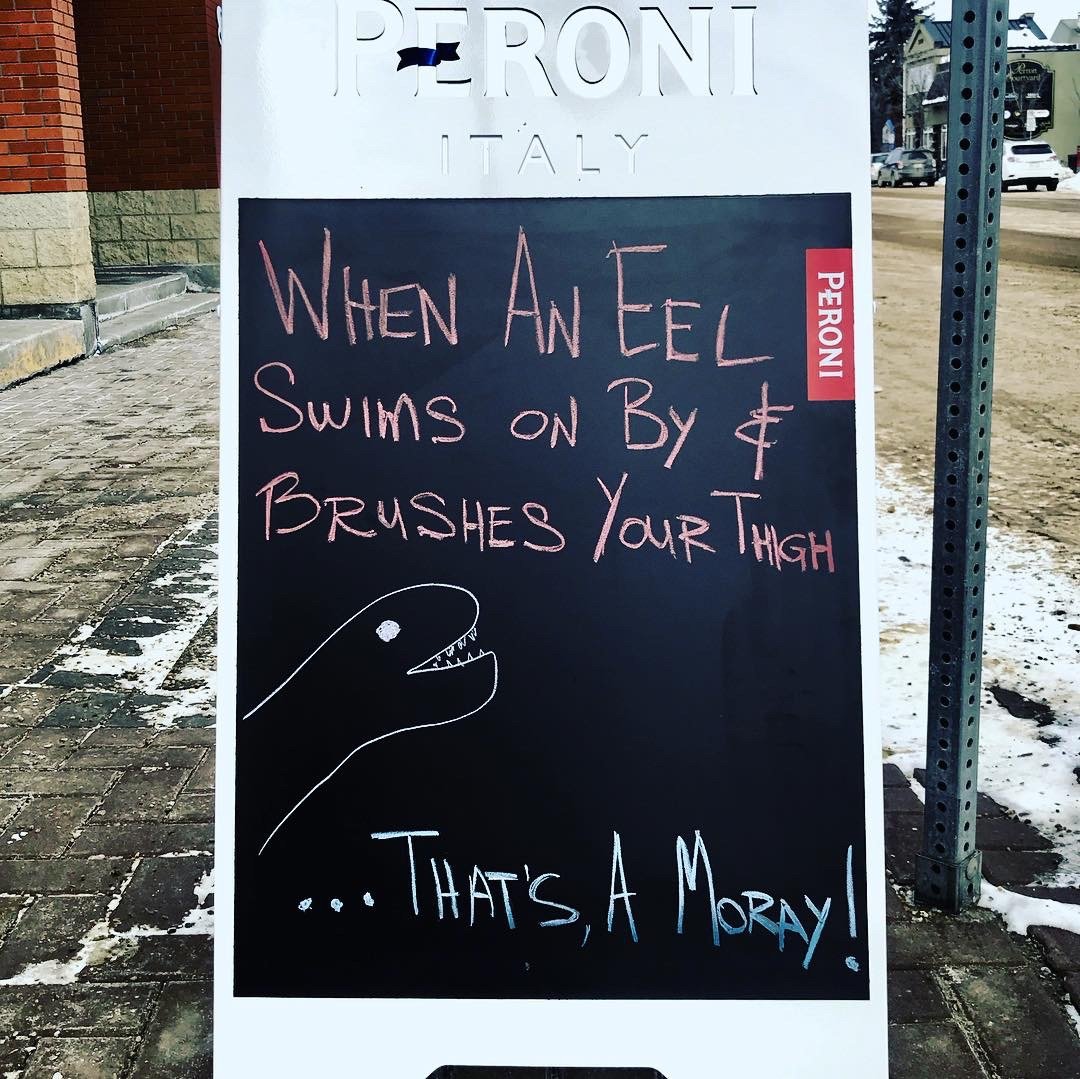 PERONI
ITALY
PERONI
WHEN AN EEL
SWIMS ON BY &
BRUSHES YOUR THIGH
...THAT'S, A MORAY!
Perron
Courtyard